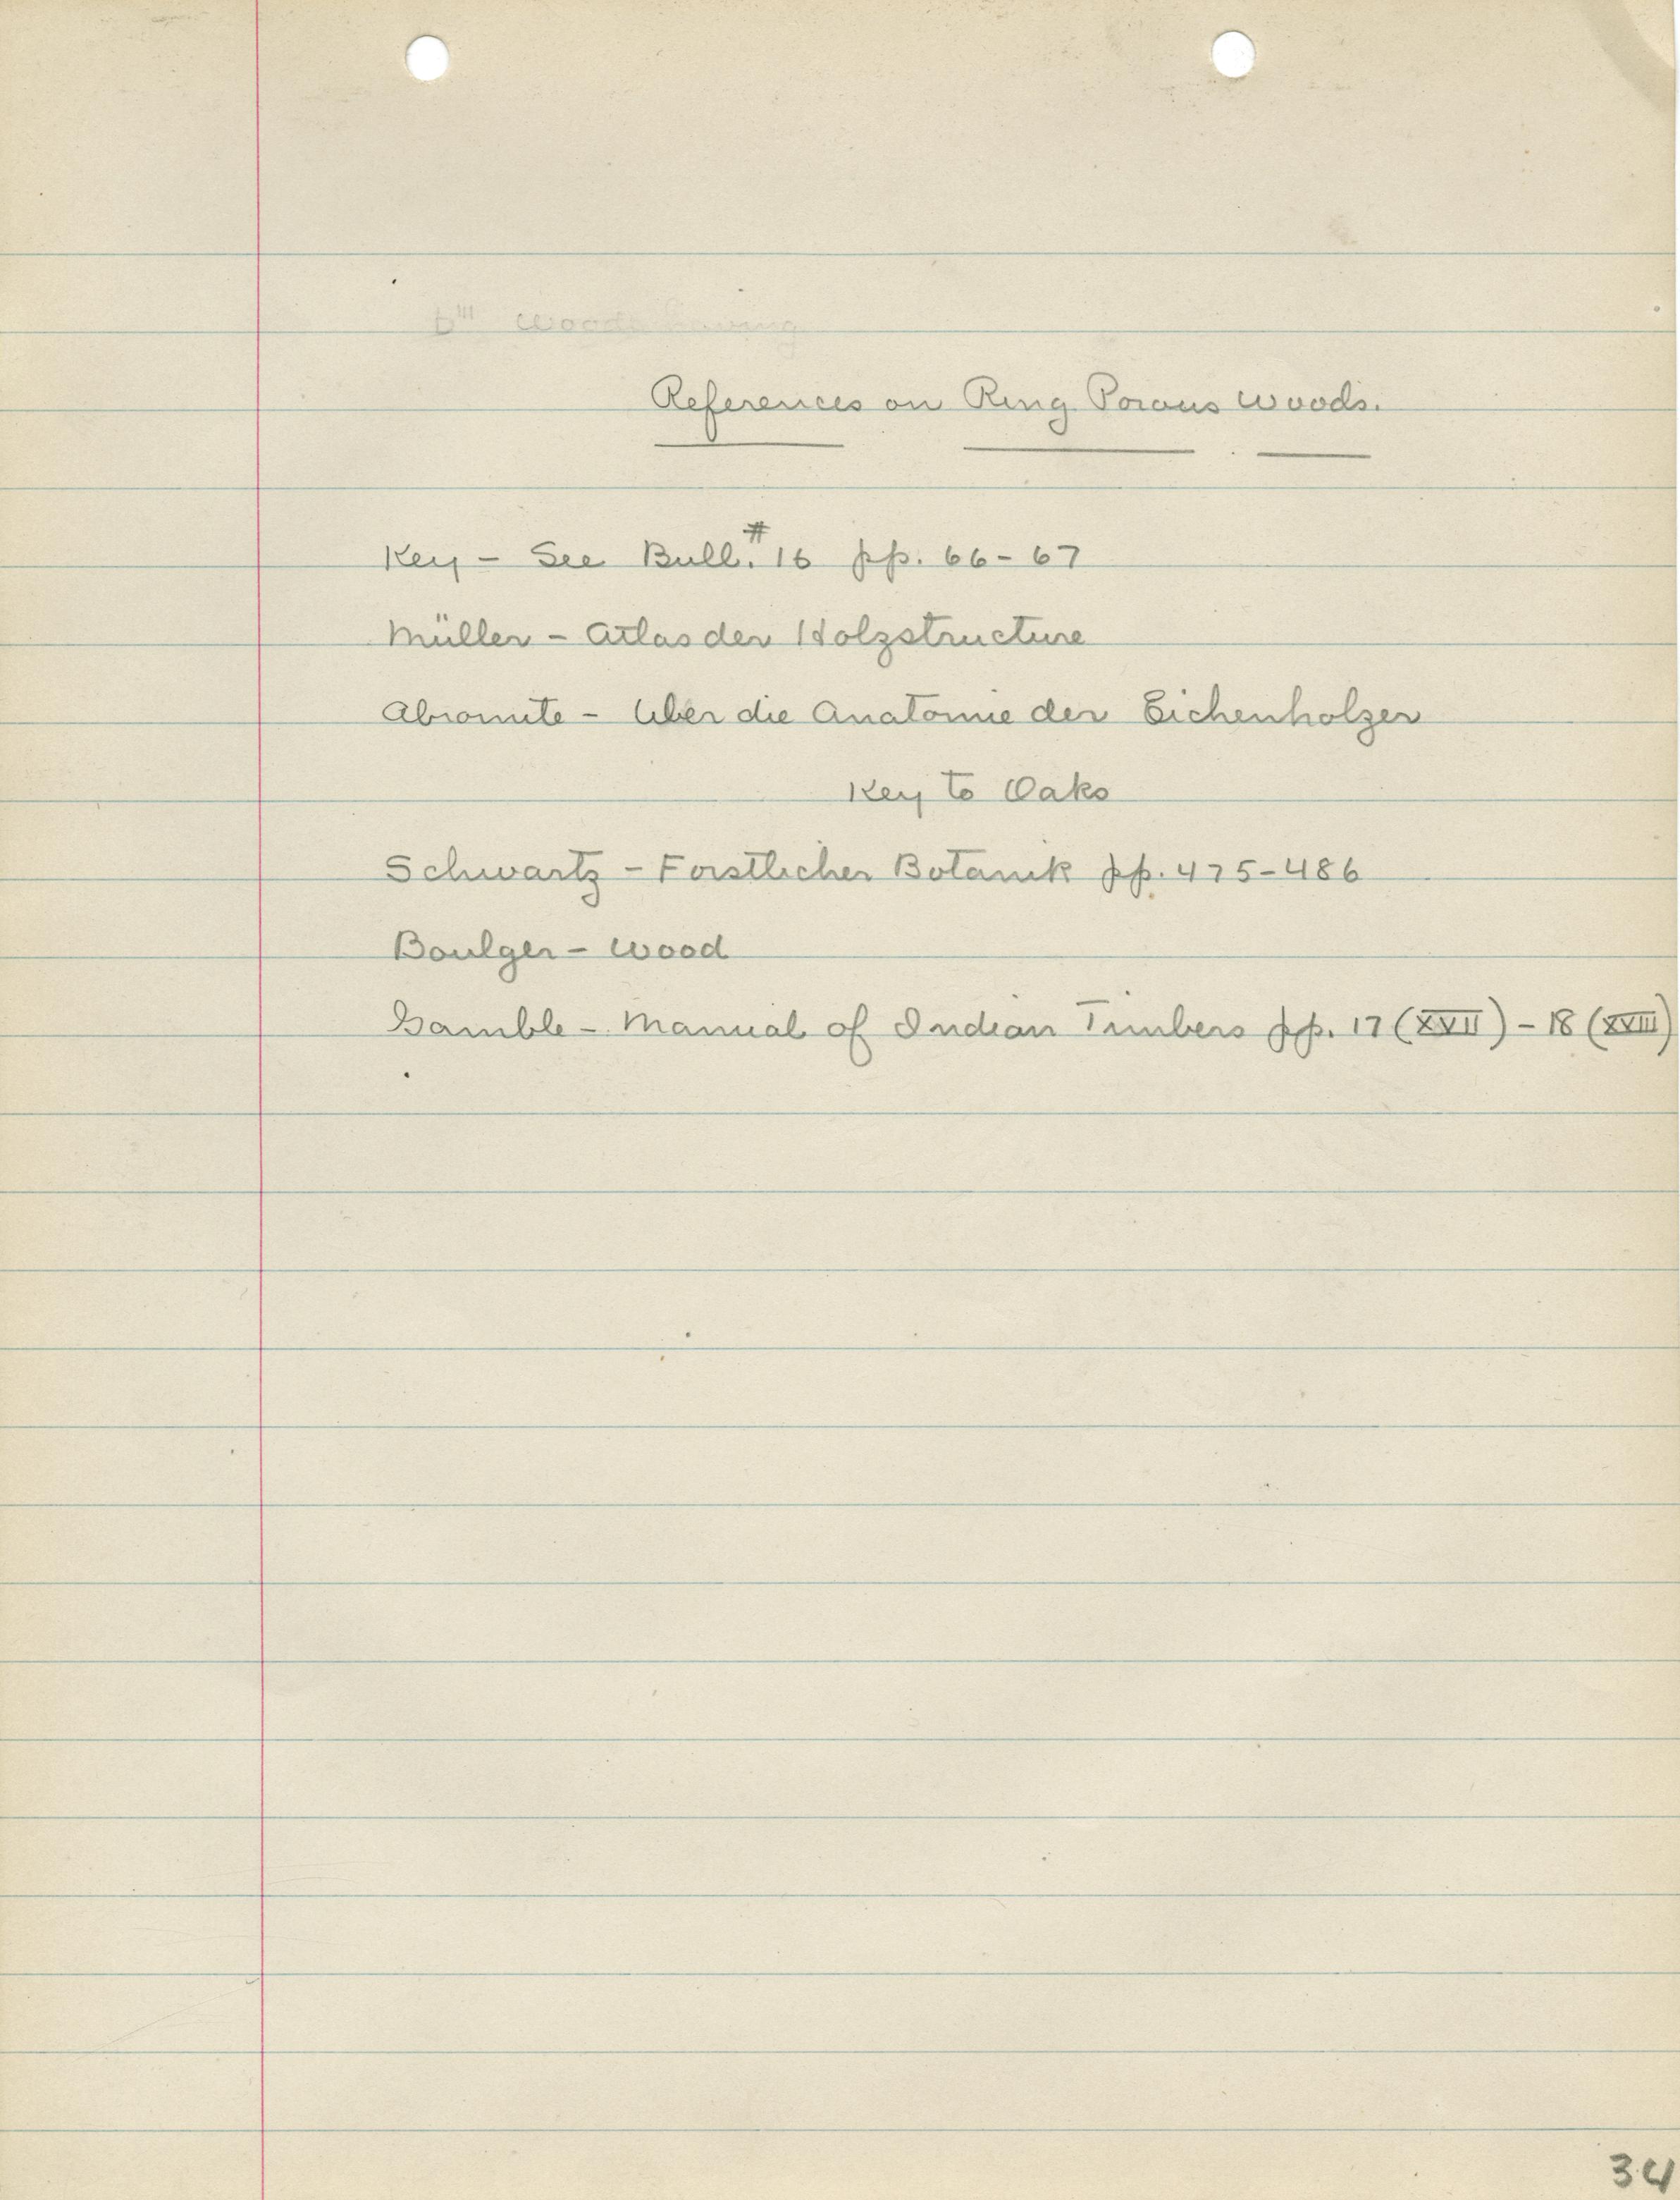 References on Ring Porous Woods.
Key - See Bull. #16 pp. 66-67
Müller - Atlas der Holzstructure
Abromite - Uber die Anatomie der Eichenholzer
Key to Oaks
Schwartz - Forstlicher Botanik pp. 475-486
Boulger - Wood
Gamble - Manual of Indian Timbers pp. 17 (XVII) - 18 (XVIII)
34